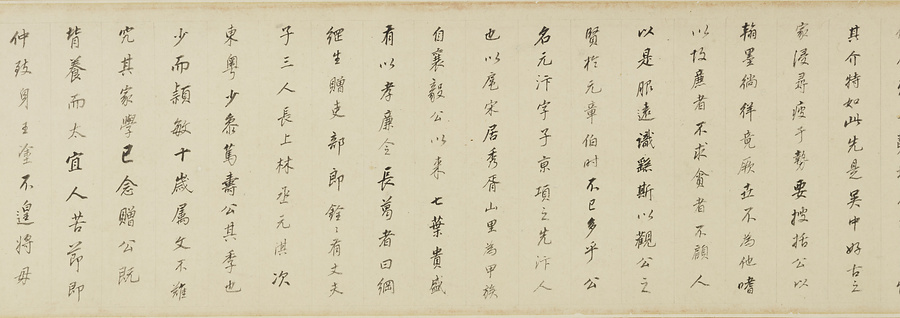 其介特如此先是吳中好古之
家浸尋疲于勢要搜括公以
翰墨徜徉竟厥世不為他嗜
以故廉者不求貪者不顧人
以是服遠識繇斯以觀公之
賢於元章伯時不已多乎公
名元汴字子京項之先汴人
也以扈宋居秀胥山里為甲族
自襄毅公以來七葉貴盛
有以孝廉令長葛者曰綱
綱生贈吏部郎銓〻有丈夫
子三人長上林丞元淇次
東粵少叅篤壽公其季也
少而穎敏十歲属文不難
究其家學已念贈公既
背養而太宜人苦節即
仲跂身王塗不遑將母